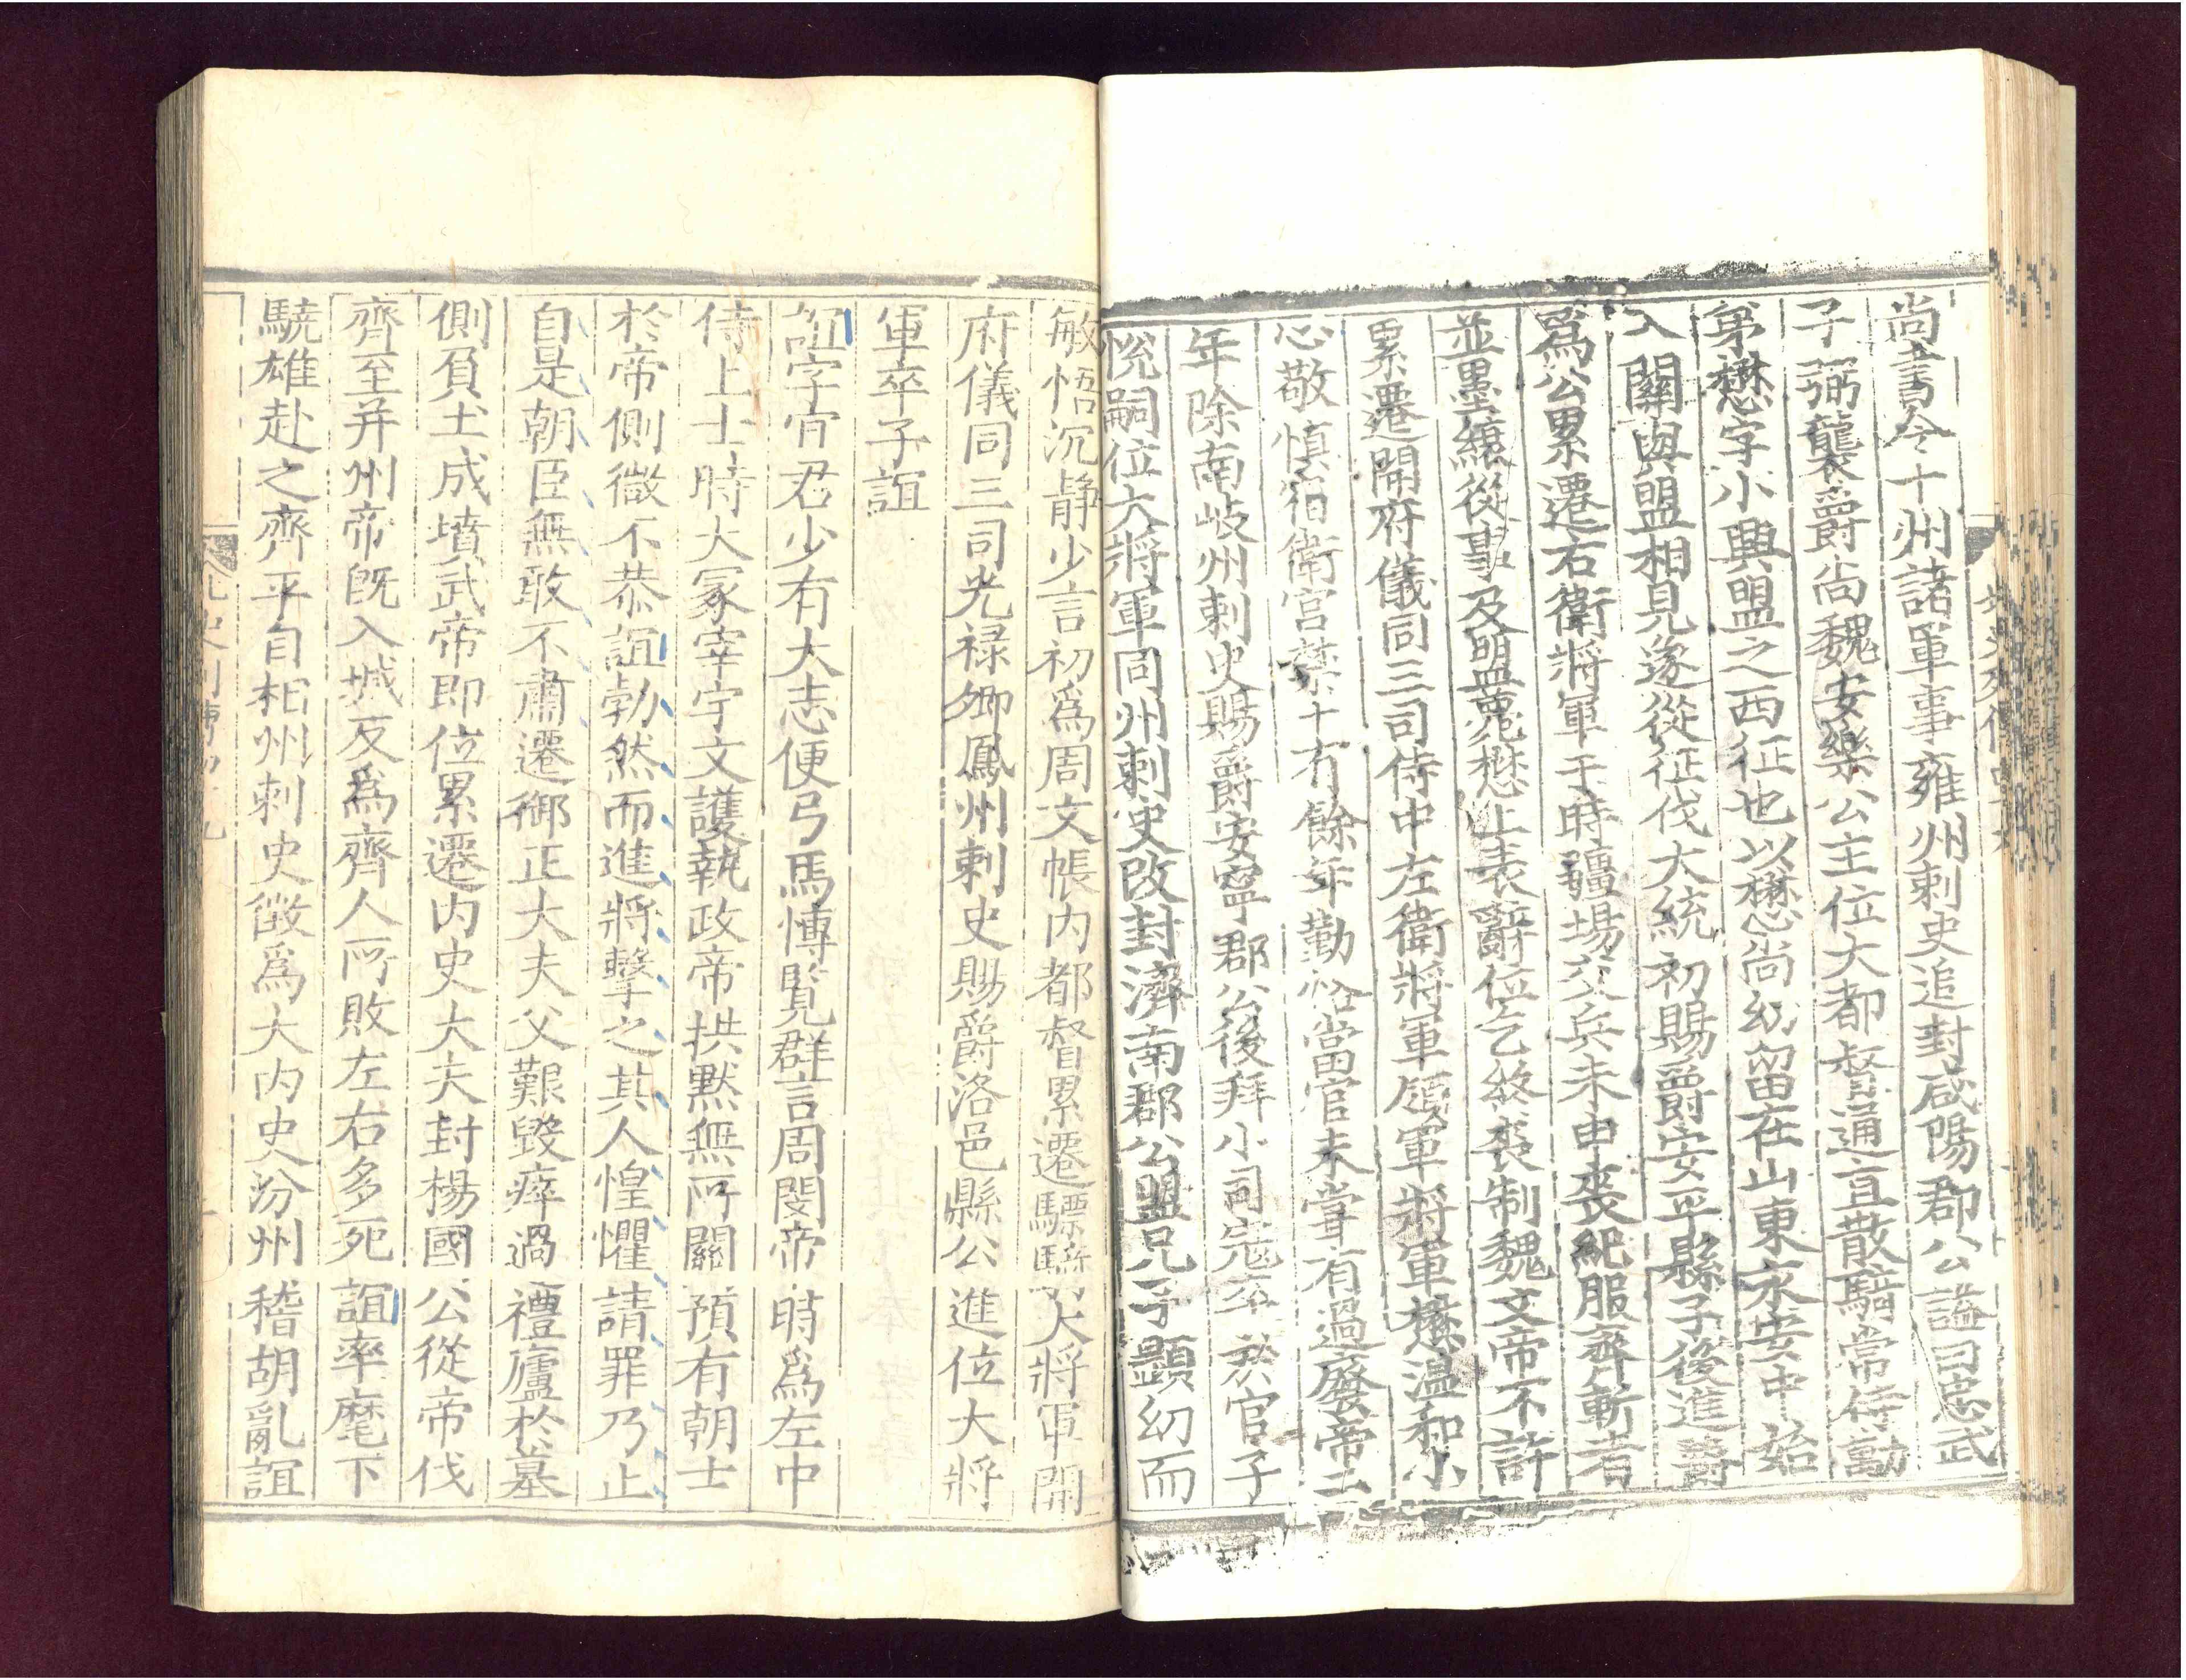 尚書令十州諸軍事雍州刺史追封咸陽郡公諡曰忠武
子弼襲爵尚魏安樂公主位大都督通直散騎常侍勱
弟懋字小興盟之西征也以懋尚幼留在山東永安中始
入關與盟相見遂從征伐大統初賜爵安平縣子後進爵
爲公累遷右衛將軍于時疆埸交兵未申喪紀服齊斬者
並墨縗從事及盟薨懋上表辭位乞終喪制魏文帝不許
累遷開府儀同三司侍中左衛將軍領軍將軍懋溫和小
心敬慎宿衛宮禁十有餘年勤恪當官未嘗有過廢帝二
年除南岐州刺史賜爵安寧郡公後拜小司寇卒於官子
悅嗣位大將軍同州刺史改封濟南郡公盟兄子顯幼而
敏悟沉靜少言初爲周文帳內都督累遷驃騎大將軍開
府儀同三司光祿卿鳳州刺史賜爵洛邑縣公進位大將
軍卒子誼
誼字宜君少有大志便弓馬博覽群言周閔帝時爲左中
侍上士時大冢宰宇文護執政帝拱默無所關預有朝士
於帝側微不恭誼勃然而進將擊之其人惶懼請罪乃止
自是朝臣無敢不肅遷御正大夫父艱毀瘁過禮廬於墓
側負土成墳武帝即位累遷內史大夫封楊國公從帝伐
齊至并州帝既入城反爲齊人所敗左右多死誼率麾下
驍雄赴之齊平自相州刺史徵爲大內史汾州稽胡亂誼